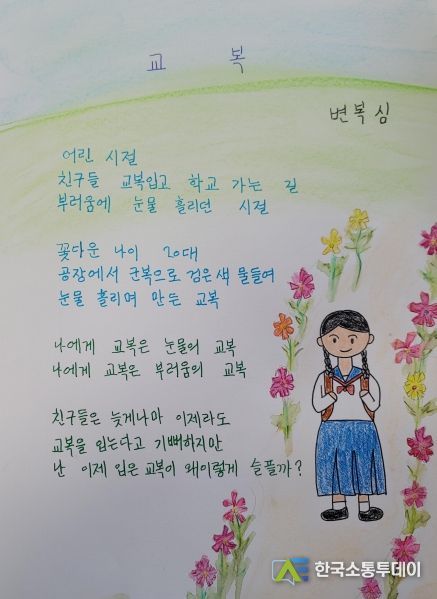 교 복
변복심
어린 시절
친구들 교복입고 학교 가는 길
부러움에 눈물 흘리던 시절
꽃다운 나이 20대
공장에서 군복으로 검은색 물들여
눈물 흘리며 만든 교복
나에게 교복은 눈물의 교복
나에게 교복은 부러움의 교복
친구들은 늦게나마 이제라도
교복을 입는다고 기뻐하지만
난 이제 입은 교복이 왜이렇게 슬플까?
한국소통투데이